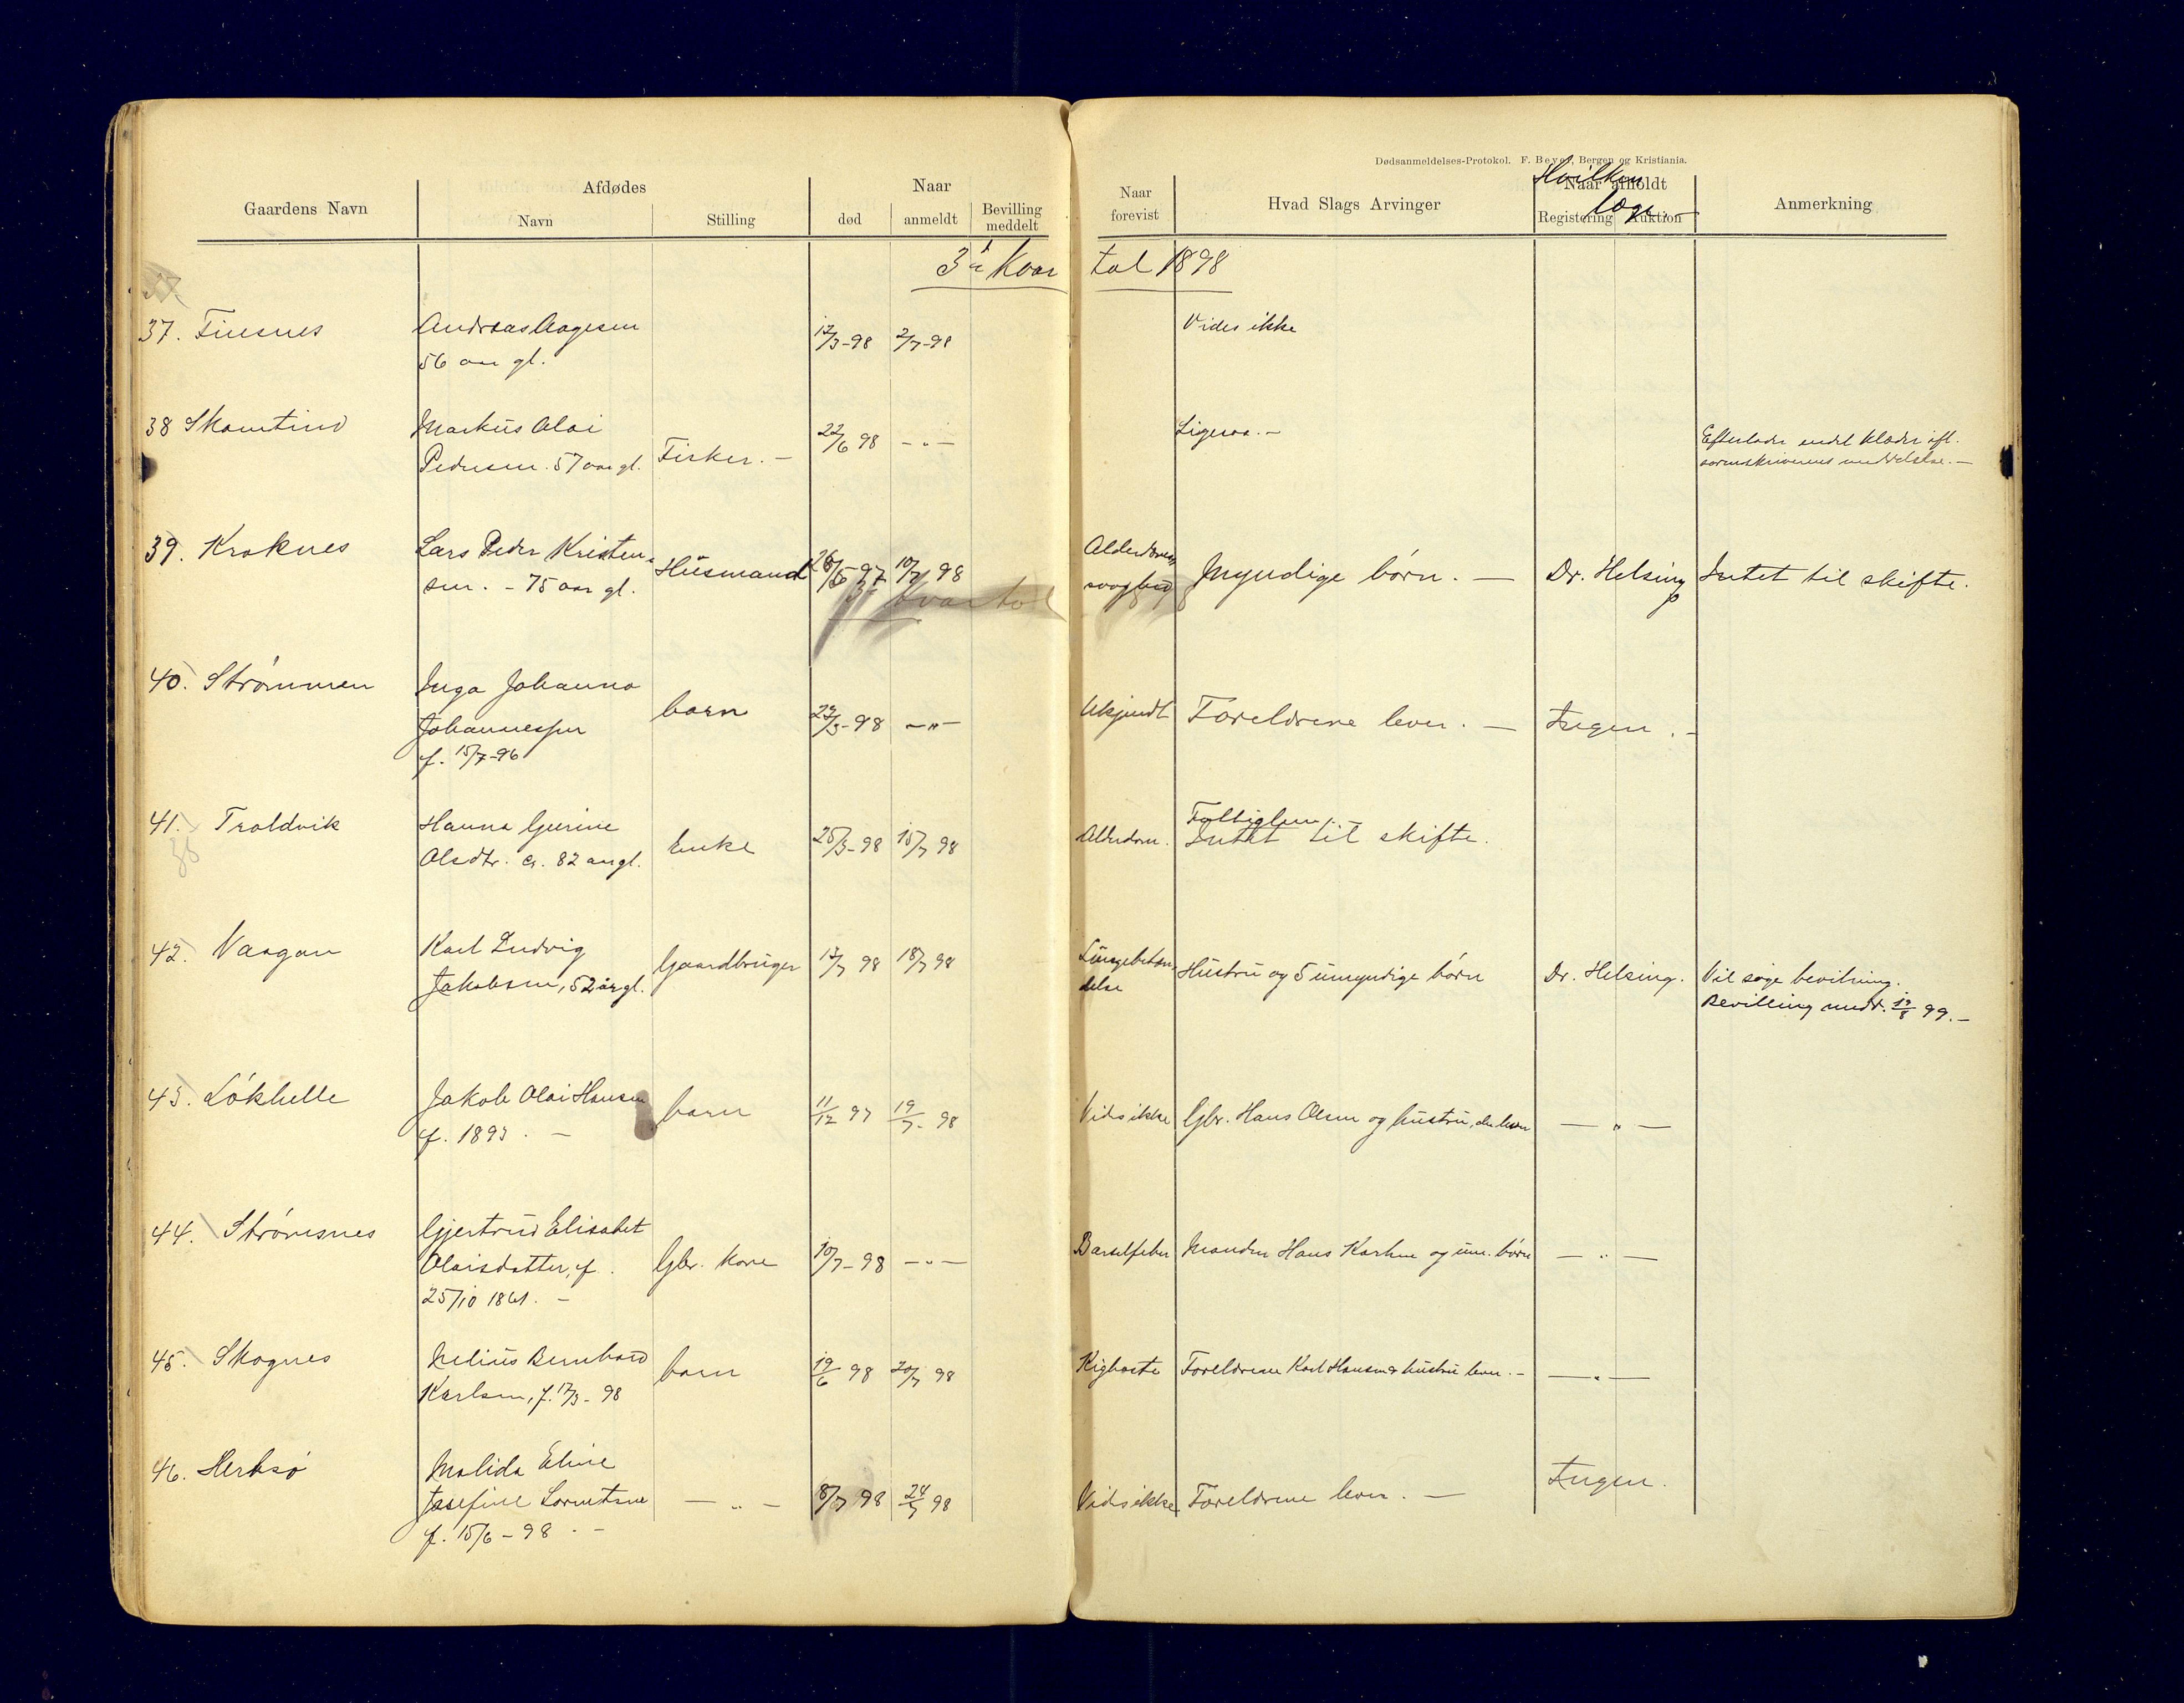 Dødsanmeldelses-Protokol. F. Beyer, Bergen og Kristiania.
Gaardens Navn
Afdødes
Navn
Stilling
Naar
død
anmeldt
Bevilling meddelt
Naar forevist
Hvad Slags Arvinger
Naar afholdt
Registering
Auktion
Hvilken
læge.
Anmerkning
3die Kvartal 1898
37. Finsnes
Andreas Aagesen
56 aar gl.
12/3-98
2/7-98
Vides ikke
38 Skomtind
Markus Olai
Pedersen. 57 aar gl.
Fisker. -
22/6 98
- " -
Ligesaa. -
Efterlader endel klæder ifl.
sorenskriverens meddelelse. -
39. Kroknes
Lars Peder Kristen-
sen. - 75 aar gl.
Husmand
26/5-97
10/7 98
Alderdoms
svaghed
Myndige børn. -
Dr. Helsing
Intet til skifte.
40. Strømmen
Inga Johanna
Johannessen
f. 15/7-96
barn
23/3-98
- " -
Ukjendt
Foreldrene lever. -
Ingen. -
41. Troldvik
38
Hanna Gurine
Olsdtr. ca. 82 aar gl.
Enke
25/3-98
15/7 98
Alderdom.
Fattiglem.
Intet til skifte.
42. Vaagan
Karl Ludvig
Jakobsen, 52 år gl.
Gaardbruger
12/7 98
18/7 98
Lungebetæn-
delse
Hustru og 5 umyndige børn
Dr. Helsing.
Vil søge bevilning.
Bevilling medd. 19/8 99. -
43. Løkhelle
Jakob Olai Hansen
f. 1893. -
barn
11/12 97
19/7-98
Vides ikke
Gbr. Hans Olsen og hustru, der lever
- " -
44. Strømsnes
Gjertrud Elisabet
Olaisdatter, f.
25/10 1861. -
Gbr. kone
10/7-98
- " -
Barselfeber
Manden Hans Karlsen og um. børn
- " -
45. Skognes
Nelius Bernhard
Karlsen, f. 17/3-98
barn
19/6 98
20/7 98
Kighoste
Foreldrene Karl Hansen & hustru lever. -
- " -
46. Herksø
Malida Eline
Josefine Lorentsen
f. 15/6-98. -
- " -
8/7 98
24/7 98
Vides ikke
Foreldrene lever. -
Ingen.